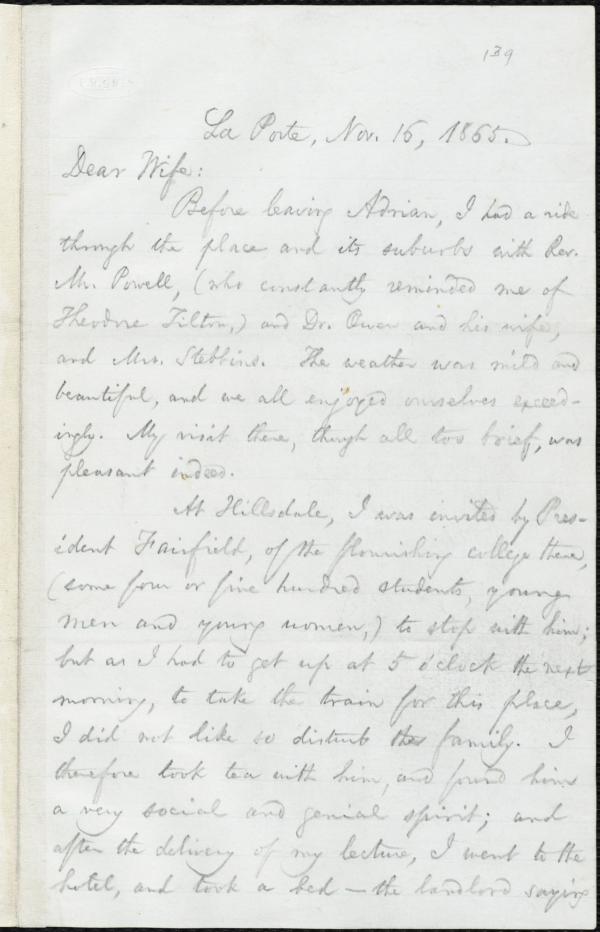 139
La Porte, Nov. 16, 1865.
Dear Wife:
Before leaving Adrian, I had a ride
through the place and its suburbs with Rev.
Mr. Powell, (who constantly reminded me of
Theodore Tilton,) and Dr. Owen and his wife,
and Mrs. Stebbins. The weather was mild and
beautiful, and we all enjoyed ourselves exceed-
ingly. My visit there, though all too brief, was
pleasant indeed.
At Hillsdale, I was invited by Pres-
ident Fairfield, of the flourishing college there,
(some four or five hundred students, young
men and young women,) to stop with him;
but as I had to get up at 5 o'clock the next
morning, to take the train for this place,
I did not like so disturb the family. I
therefore took tea with him, and found him
a very social and genial spirit; and
after the delivery of my lecture, I went to the
hotel, and took a bed — the landlord saying